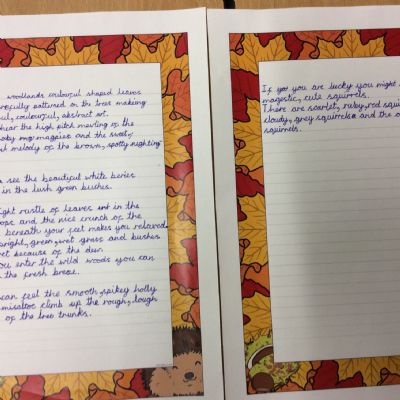 woodlands colourful shaped leaves
carefully pattored on the trees making
ful, coulourful, abstract art.
hear the high pitch meoting of the
mag magpies and the sweet,
melody of the brown, spotty nighting
see the beautiful white beries
in the lush green bushes.
ght rustle of leaves in the
ops and the nice crunch of the
beneath your feet makes you relaxed
bright, green, wet grass and bushes
et because of the dew.
ou enter the wild woods you can
the fresh breze.
can feel the smooth, spikey holly
misaltoe climb up the rough, tough
of the tree trunks.
If you are lucky you might
magestic, cute squirrels.
There are scarlet, ruby, red squi
cloudy, grey squirrels and the o
squirrels.